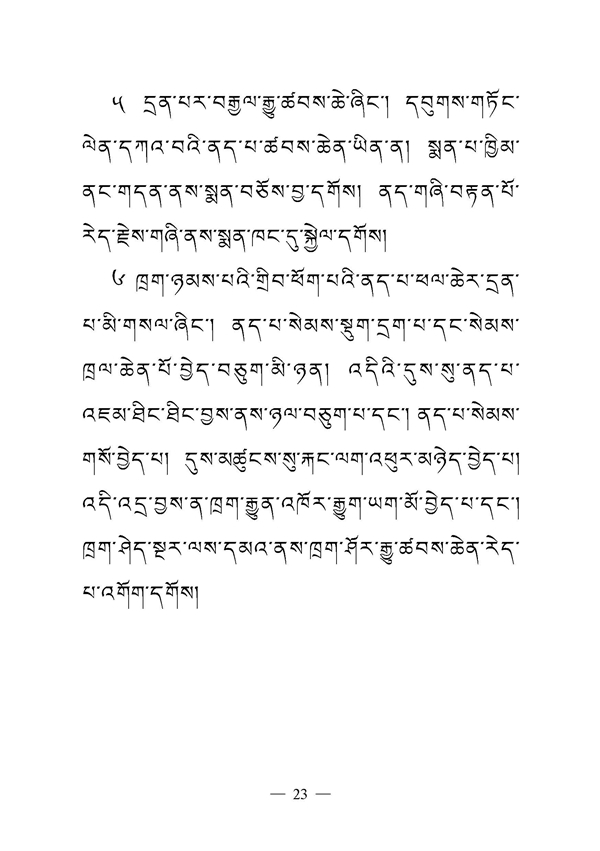 ༥ དྲན་པར་བརྒྱལ་རྒྱུ་ཚབས་ཆེ་ཞིང་། དབུགས་གཏོང་
ལེན་དཀའ་བའི་ནད་པ་ཚབས་ཆེན་ཡིན་ན། སྨན་པ་ཁྱིམ་
ནང་གདན་ནས་སྨན་བཅོས་བྱ་དགོས། ནད་གཞི་བརྟན་པོ་
རེད་རྗེས་གཞི་ནས་སྨན་ཁང་དུ་སྐྱེལ་དགོས།
༦ ཁྲག་ཉམས་པའི་གྲིབ་ཕོག་པའི་ནད་པ་ཕལ་ཆེར་དྲན་
པ་མི་གསལ་ཞིང་། ནད་པ་སེམས་སྡུག་དྲག་པ་དང་སེམས་
ཁྲལ་ཆེན་པོ་བྱེད་བཅུག་མི་ཉན། འདིའི་དུས་སུ་ནད་པ་
འཇམ་ཐིང་ཐིང་བྱས་ནས་ཉལ་བཅུག་པ་དང་། ནད་པ་སེམས་
གསོ་བྱེད་པ། དུས་མཚུངས་སུ་རྐང་ལག་འཕུར་མཉེད་བྱེད་པ།
འདི་འདྲ་བྱས་ན་ཁྲག་རྒྱུན་འཁོར་རྒྱུག་ཡག་མོ་བྱེད་པ་དང་།
ཁྲག་ཤེད་སྔར་ལས་དམའ་ནས་ཁྲག་ཤོར་རྒྱུ་ཚབས་ཆེན་རེད་
པ་འགོག་དགོས།
— 23 —